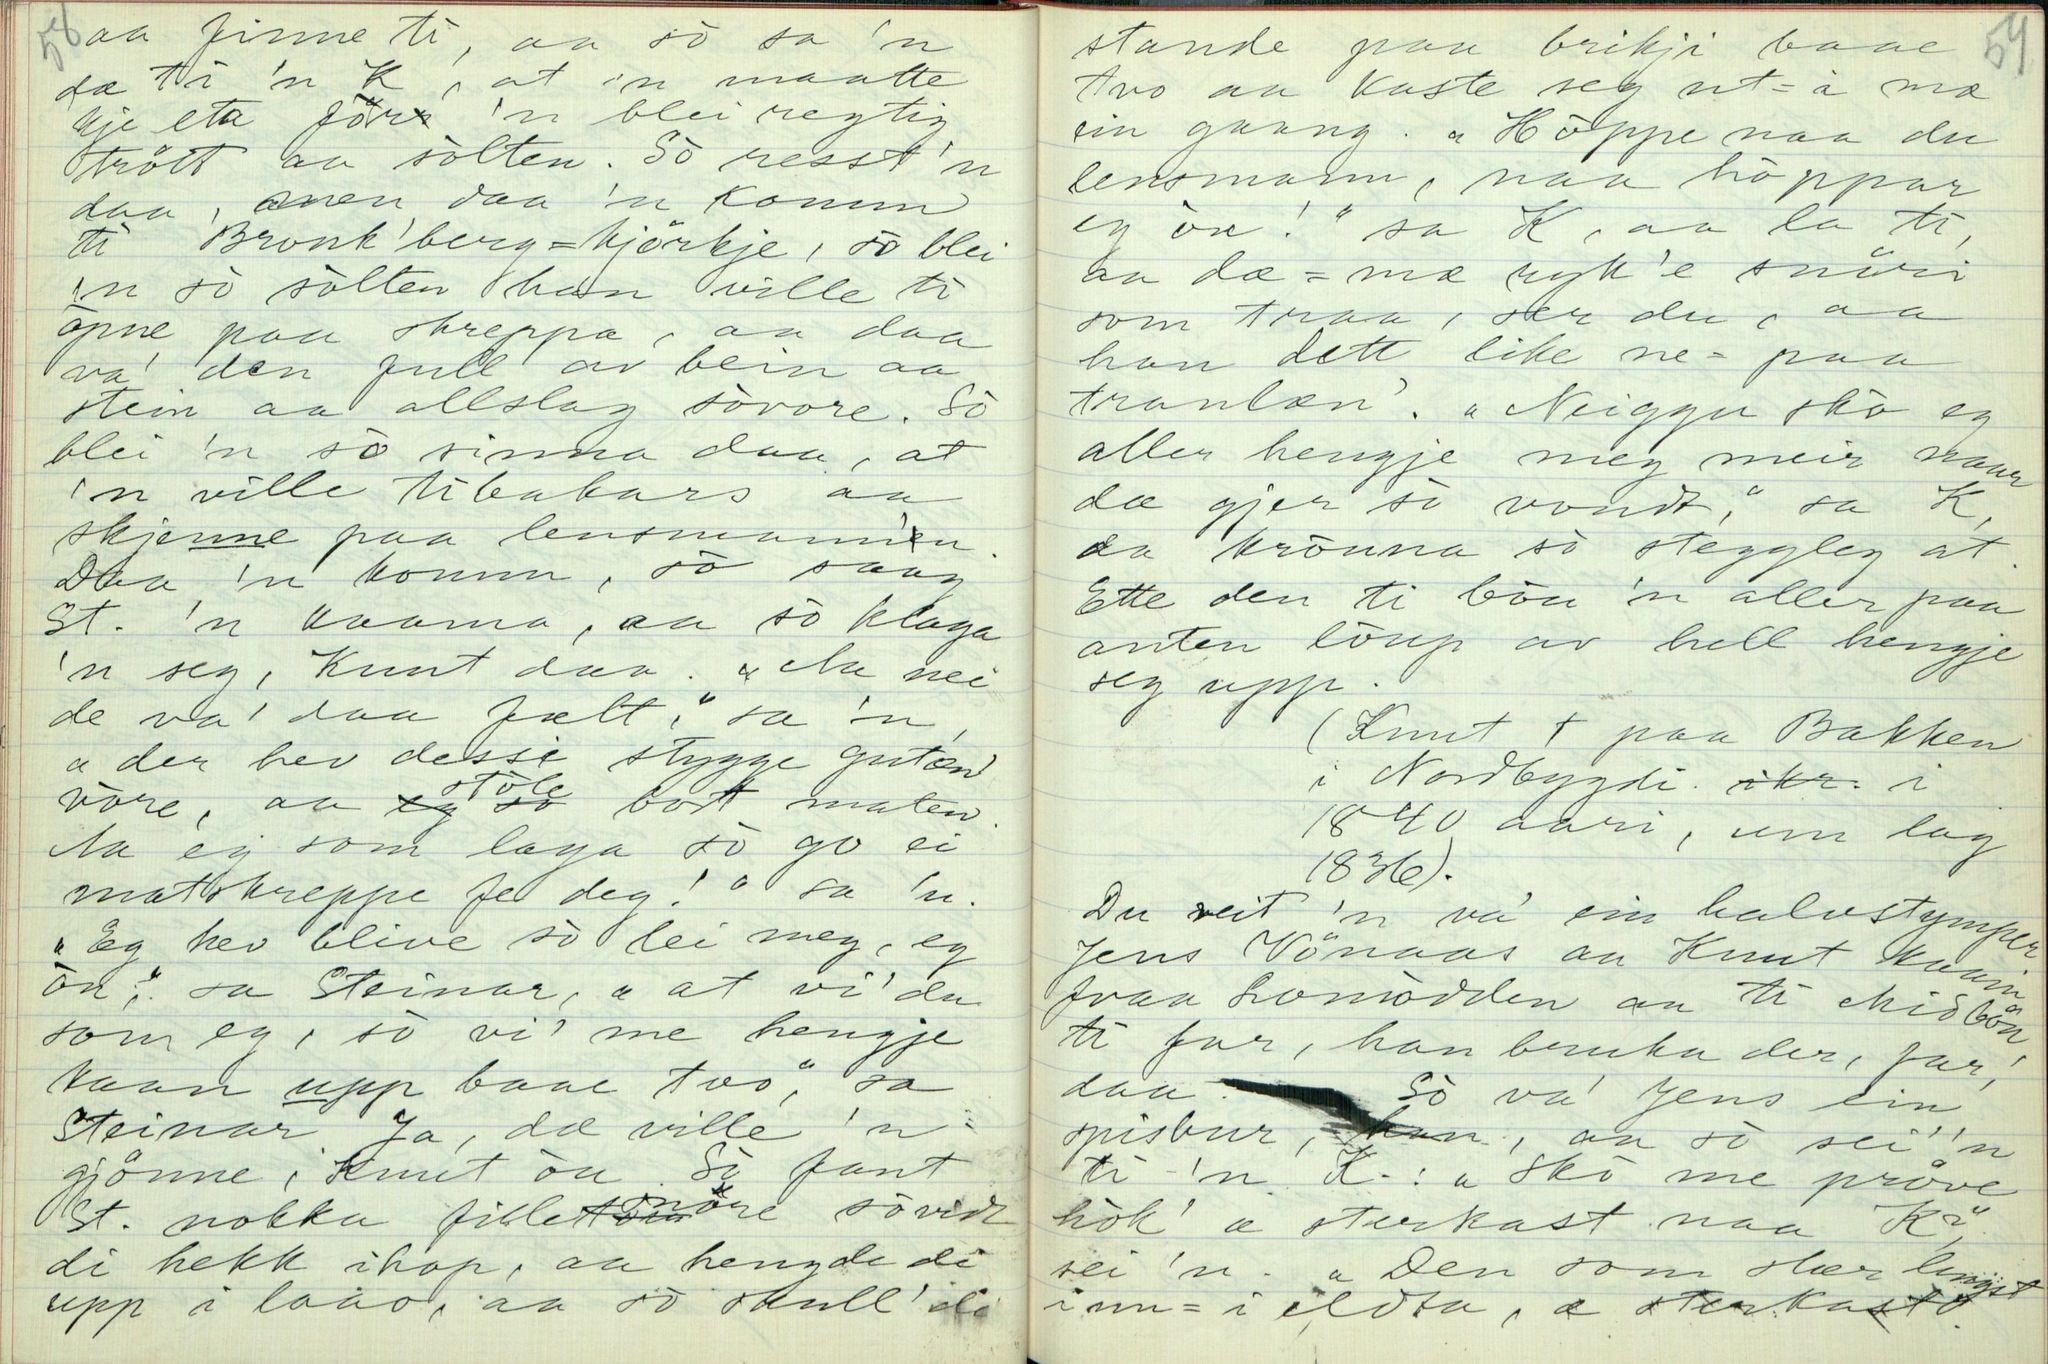 58
aa finne ti, aa sò sa 'n
dæ ti 'n K, at 'n maatte
kje eta förr 'n blei regtig
trött aa sòlten. Sò resst 'n
daa, men daa 'n komm
ti Bronk'berg=kjörkje, sò blei
'n sò sòlten han ville ti
òpne paa skreppa, aa daa
va' den full av bein aa
stein aa allslag sòvore. Sò
blei 'n sò sinna daa, at
'n ville tibakars aa
skjenne paa lensmannen.
Daa 'n komm, sò saag
St. 'n kaama, aa sò klaga
'n seg, Knut daa. „Aa nei
de va' daa fælt," sa 'n,
„der hev dessi stygge gutæn
vòre, aa stòle bort maten.
Aa eg som laga sò go ei
matskreppe fe deg!" sa 'n.
„Eg hev blive sò lei meg, eg
òu," sa Steinar, „at vi' du
som eg, sò vi' me hengje
kaan upp baae tvo," sa
Steinar. Ja, dæ ville 'n
gjönne, Knut òu. Sò fant
St. nokka fillesnöre sòvidt
di hekk ihop, aa hengde di
upp i laao, aa sò skull' di
59
stande paa brikji baae
tvo aa kaste seg ut=i mæ
ein gaang. „Höppe naa du
lensmann, naa höppar
eg òu!" sa K, aa la ti,
aa dæ=mæ ryk'e snöri
som traa, ser du, aa
han dett like ne=paa
tranlæn'. „Neiggu skò eg
aller hengje meg meir naar
dæ gjer sò vondt," sa K,
aa krönna sò steggleg at.
Ette den ti bòu 'n aller paa
anten löup av hell hengje
seg upp.
(Knut † paa Bakken
i Nordbygdi. i
1840 aari, um lag
1836).
Du veit 'n va' ein halvstymper
Jens Vönaas aa Knut kaam
fraa Lonòdden aa ti Midböu
ti far, han bruka der, far,
daa. Sò va' Jens ein
spisbur, aa sò sei' 'n
ti 'n K.: „Skò me pröve
hòk' æ sterkast naa K?"
sei 'n. „Den som slær lengst
inn=i , æ sterkast.